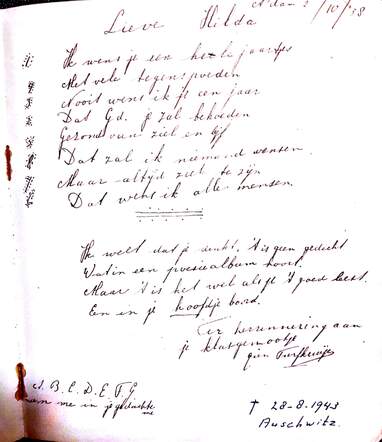 A'dam 2/10/'38
Lieve Hilda
Ik wens je een heele jaartjes
Met vele tegenspoeden
Nooit wens ik je een jaar
Dat Gd. je zal behoeden
Gezond van ziel en lijf
Dat zal ik niemand wensen
Maar altijd ziek te zijn
Dat wens ik alle mensen.
Ik weet dat je denkt, 't is geen gedicht
Wat in een poesiealbum hoort.
Maar 't is het wel als je 't goed leest.
En in je hoofdje boort.
Ter herinnering aan
je klasgenootje
A. B. C. D. E. F. G
me in je gedachte
me
† 28-8-1943
Auschwitz.